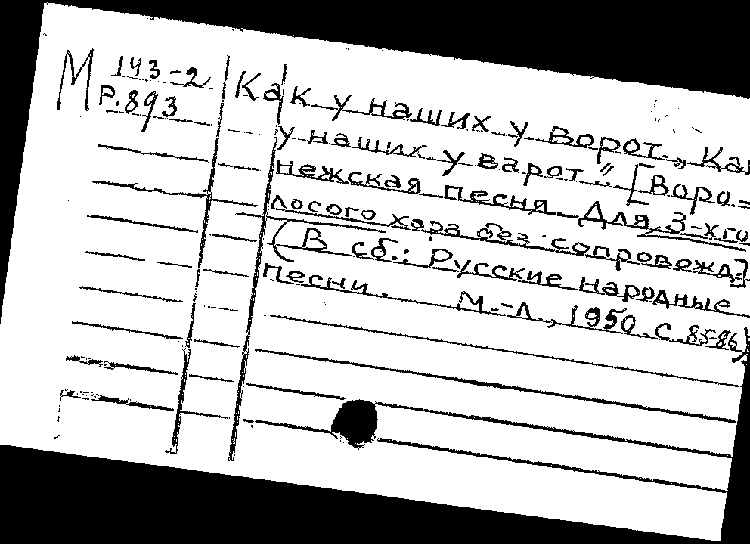 М 143-2
Р.893
Как у наших у ворот. „Как
у наших у варот." [Воро=
нежская песня. Для 3-хго
лосого хора без сопровожд.]
(В сб.: Русские народные
песни. М.-Л., 1950. С. 85-86)